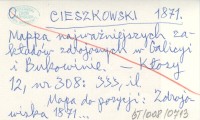 Q CIESZKOWSKI 1871.
Mappa najważniejszych za-
kładów zdrojowych w Galicyi
i Bukowinie. — Kłosy
12, nr 308: 333, il
Mapa do pozycji: Zdrojo-
wiska 1871...
57/008/0713